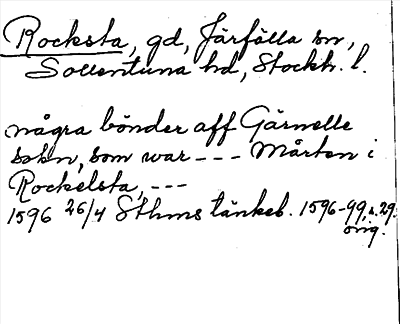 Rocksta, gd, Järfälla sn,
Sollentuna hd, Stockh. l.
några bönder aff Gärnelle
sokn, som war --- Mårten i
Rockelsta, ---
1596 26/4 Sthms tänkeb. 1596-99, s. 29.
orig.